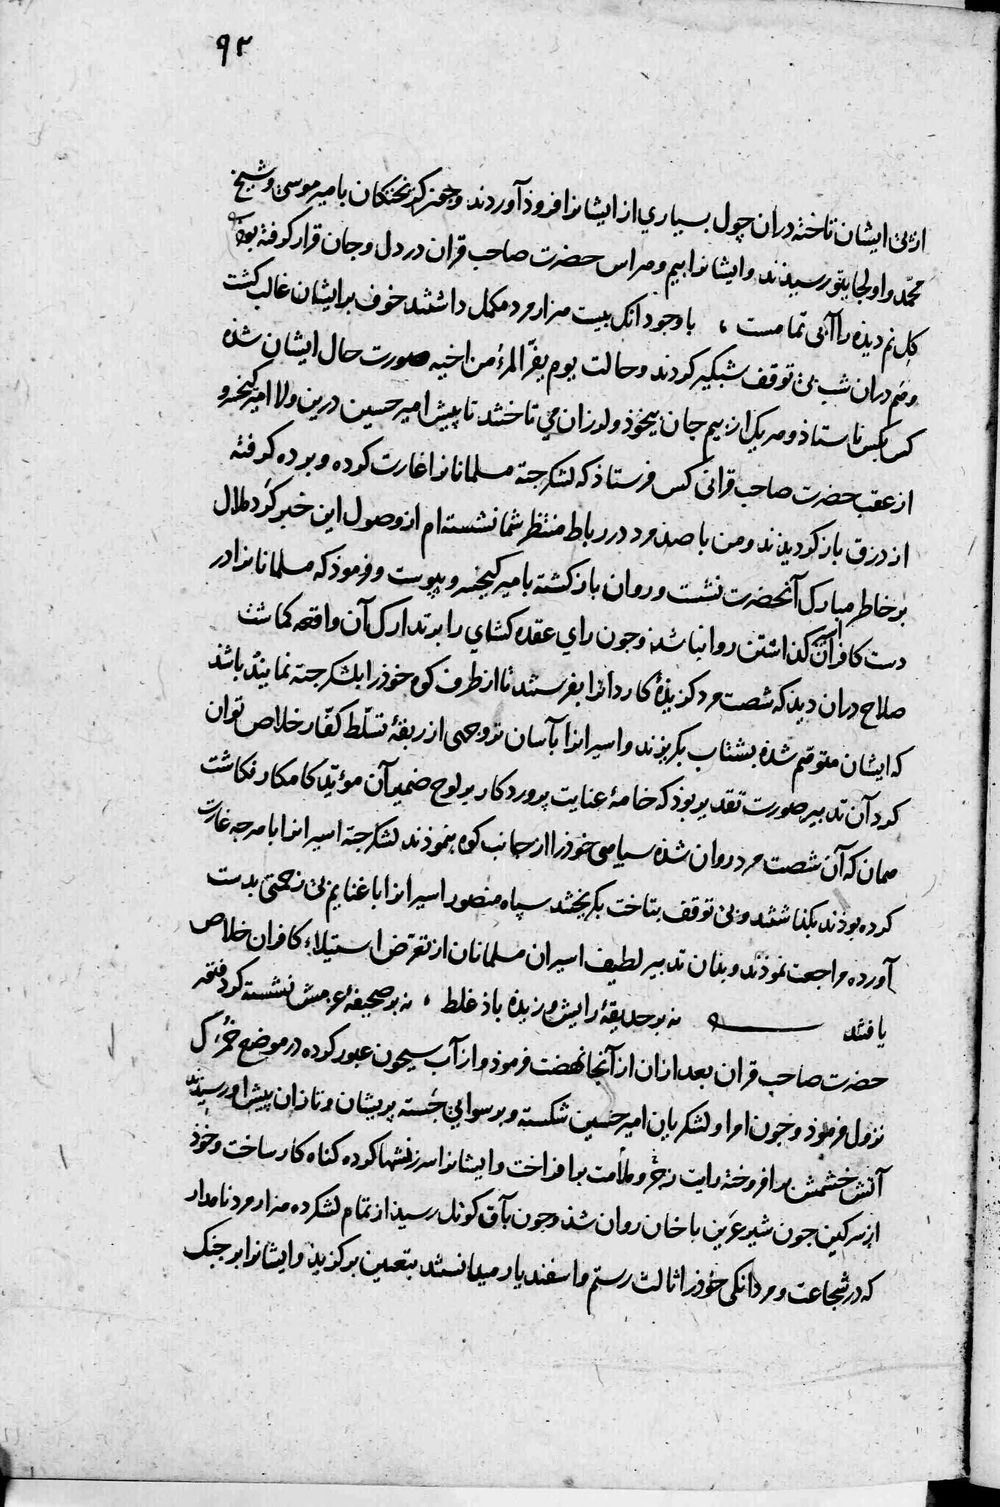 ۹۲
از پی ایشان تاخته دران چول بسیاری از ایشانرا فروذ آوردند وجمعی کریختکان بامیر موسی وشیخ
محمّد واولجایتو رسیذند وایشانرا بیم وهراس حضرت صاحب قران در دل وجان قرار کرفته بوذ
کل نم دیذه را آبی تمامست ، باوجود انک بیست هزار مرد مکمل داشتند خوف بر ایشان غالب کشت
وهم دران شب بی توقف شبکیر کردند وحالت یوم یفرّ المرءُ من اخیه صورت حال ایشان شذه
کس بکس نا ستاذ وهر یک از بیم جان بیخوذ ولرزان می تاختند تا پیش امیر حسین درین ولا امیر کیخسرو
از عقب حضرت صاحب قرانی کس فرستاذ که لشکر جته مسلمانانرا غارت کرده وبرده کرفته
از درق باز کردیدند ومن با صد مرد در رباط منتظر شما نشسته ام از وصول این خبر کَرد ملال
بر خاطر مبارک آنحضرت نشست وروان باز کشته بامیر کیخسرو پیوست وفرموذ که مسلمانانرا در
دست کافران گذاشتن روا نباشذ وچون رای عقده کشای را بر تدارک آن واقعه کماشت
صلاح دران دیذ که شصت مرد کزیذهٔ کاردانرا بفرستند تا از طرف کوه خوذرا بلشکر جته نمایند باشذ
که ایشان متوهم شذه بشتاب بکریزند واسیرانرا بآسان تر وجهی از ربقهٔ تسلّط کفّار خلاص توان
کرد آن تدبیر صورت تقدیر بوذ که خامهٔ عنایت پروردکار بر لوح ضمیر آن مؤیّد کامکار نکاشت
همان که آن شصت مرد روان شذه سیاهی خوذرا از جانب کوه بنموذند لشکر جته اسیرانرا با هر چه غارت
کرده بوذند بکذاشتند وبی توقف بتاخت بکریختند سپاه منصور اسیرانرا با غنایم بی زحمتی بدست
آورده مراجعت نموذند وبذان تدبیر لطیف اسیران مسلمانان از تعرّض استیلاء کافران خلاص
یافتند نه بر حدیقهٔ رایش وزیذه باذ غلط ، نه بر صحیفهٔ عزمش نشسته کرد فتور
حضرت صاحب قران بعد ازان از آنجا نهضت فرموذ واز آب سیحون عبور کرده در موضع خُزَک
نزول فرموذ وچون امرا ولشکریان امیر حسین شکسته وبرسوایی جَسته پریشان وتازان پیش او رسیذند
آتش خشمش بر افروخته رایت زجر وملامت بر افراخت وایشانرا سرزنشها کرده کناه کار ساخت وخوذ
از سر کین چون شیر عَرین با خان روان شذ وچون بآق کوتل رسیذ از تمام لشکر ده هزار مرد نامدار
که در شجاعت ومردانکی خوذرا ثالث رستم واسفندیار میدانستند بتعیین برکزیذ وایشانرا بر جنک